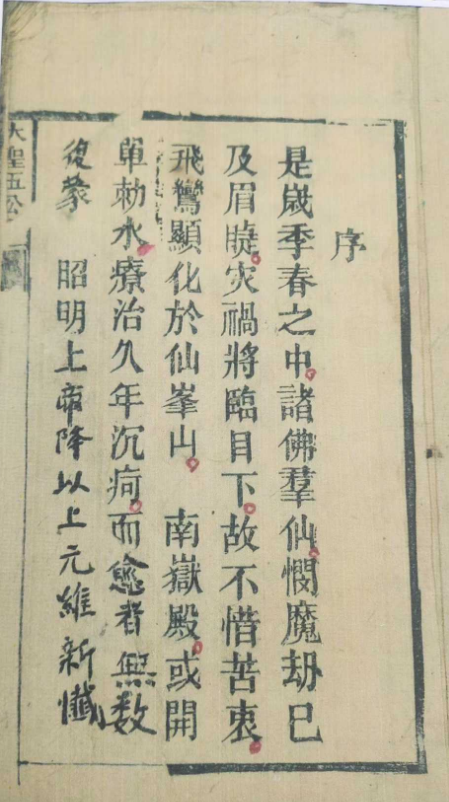 序
是歲季春之中諸佛羣仙憫魔刼已
及眉睫灾禍將臨目下故不惜苦衷
飛鸞顯化於仙峯山　南嶽殿或開
單勅水療治久年沉疴而愈者無数
後蒙　昭明上帝降以上元維新懺
大聖五公